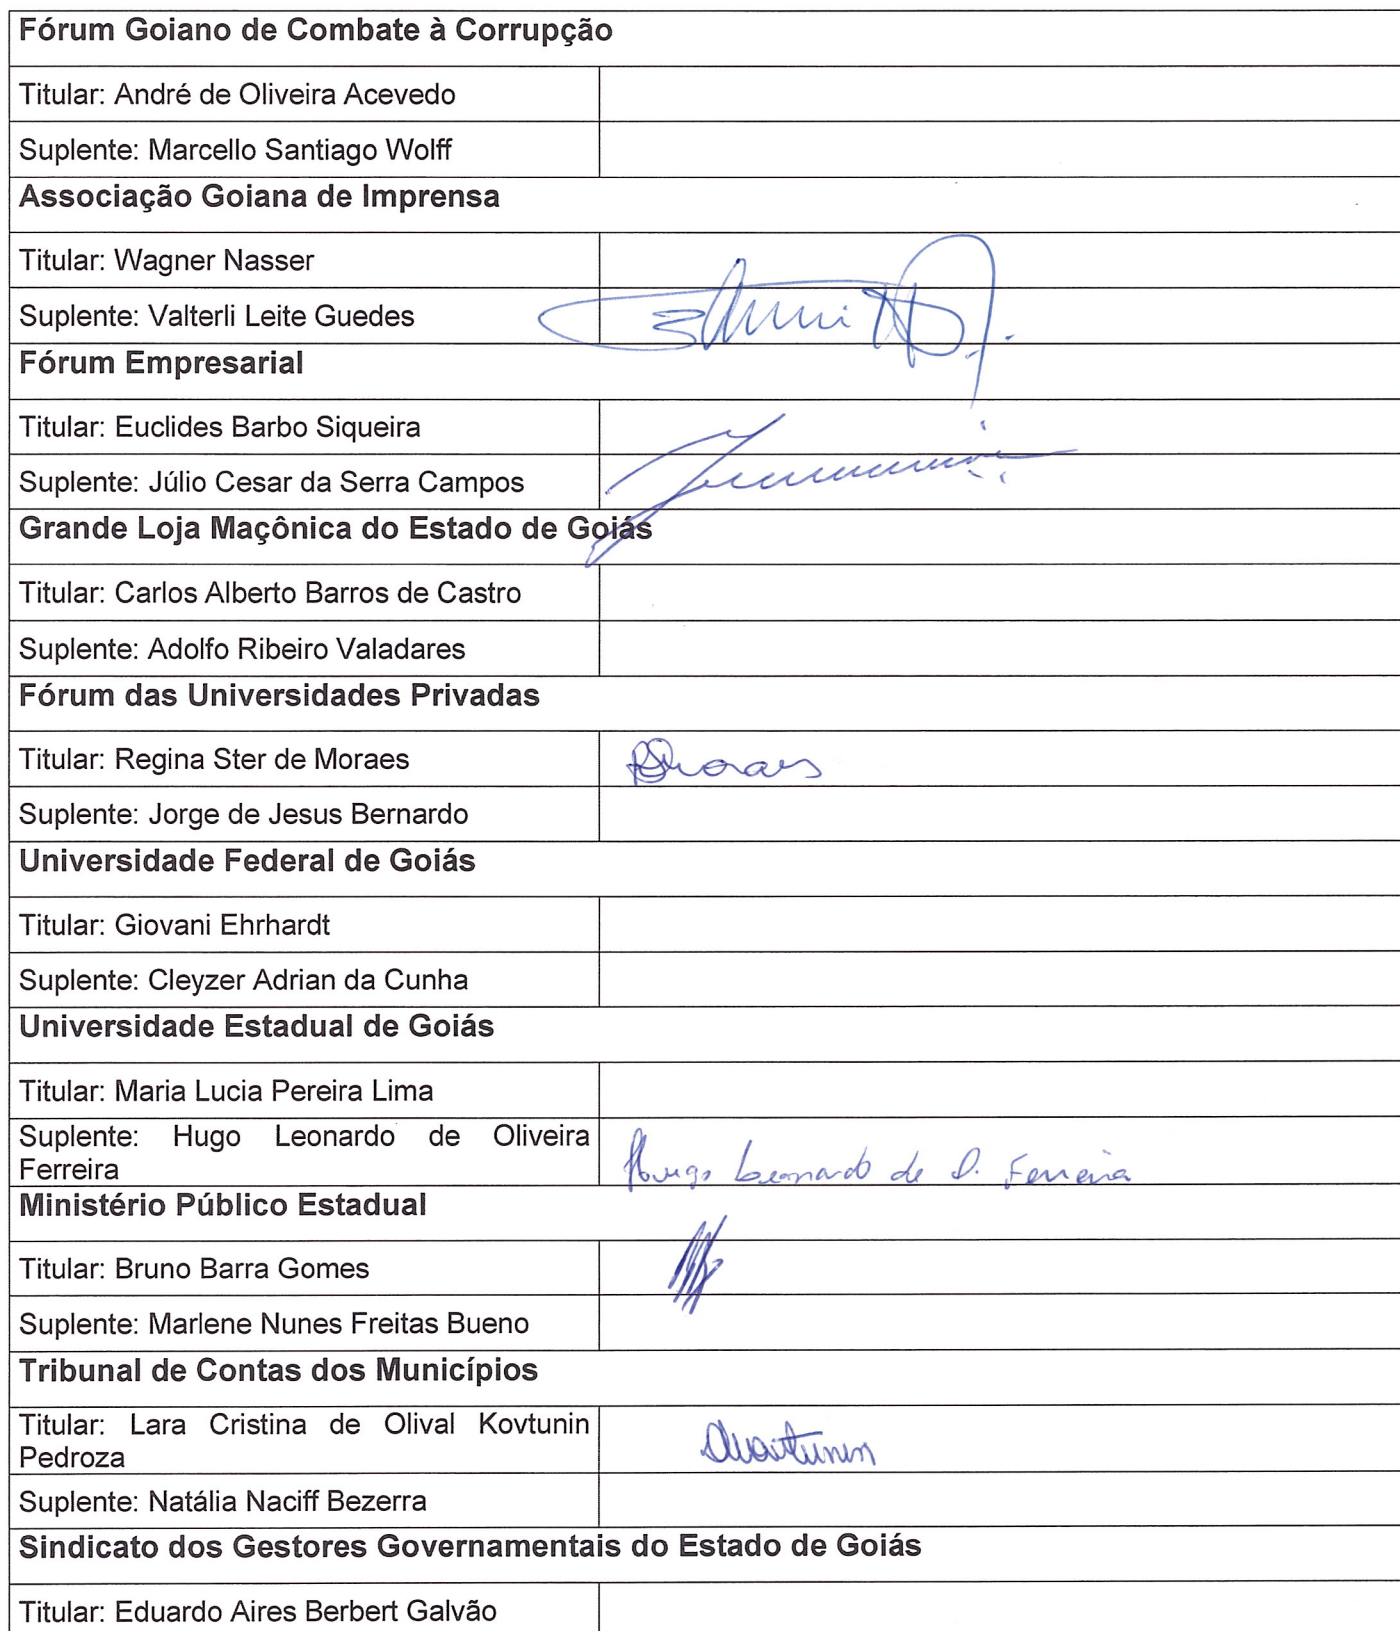 Fórum Goiano de Combate à Corrupção
Titular: André de Oliveira Acevedo
Suplente: Marcello Santiago Wolff
Associação Goiana de Imprensa
Titular: Wagner Nasser
Suplente: Valterli Leite Guedes
Fórum Empresarial
Titular: Euclides Barbo Siqueira
Suplente: Júlio Cesar da Serra Campos
Grande Loja Maçônica do Estado de Goiás
Titular: Carlos Alberto Barros de Castro
Suplente: Adolfo Ribeiro Valadares
Fórum das Universidades Privadas
Titular: Regina Ster de Moraes
Suplente: Jorge de Jesus Bernardo
Universidade Federal de Goiás
Titular: Giovani Ehrhardt
Suplente: Cleyzer Adrian da Cunha
Universidade Estadual de Goiás
Titular: Maria Lucia Pereira Lima
Suplente: Hugo Leonardo de Oliveira
Ferreira
Hugo Leonardo de O. Ferreira
Ministério Público Estadual
Titular: Bruno Barra Gomes
Suplente: Marlene Nunes Freitas Bueno
Tribunal de Contas dos Municípios
Titular: Lara Cristina de Olival Kovtunin
Pedroza
Suplente: Natália Naciff Bezerra
Sindicato dos Gestores Governamentais do Estado de Goiás
Titular: Eduardo Aires Berbert Galvão